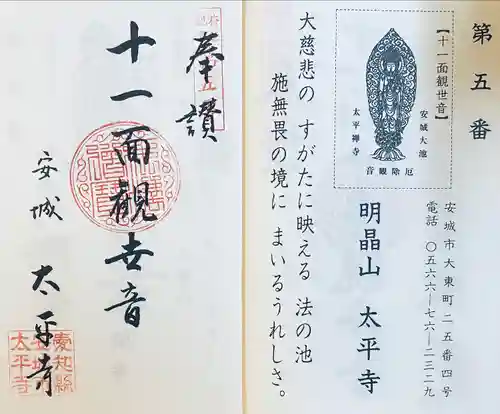 第五番
【十一面観世音】
安城大池
太平禅寺
厄除観音
安城市大東町二五番四号
電話 〇五六六―七六―二三二九
明晶山 太平寺
大慈悲の すがたに映える 法の池
施無畏の境に まいるうれしさ。
奉讃
十一面観世音
安城 太平寺
愛知県
太平寺